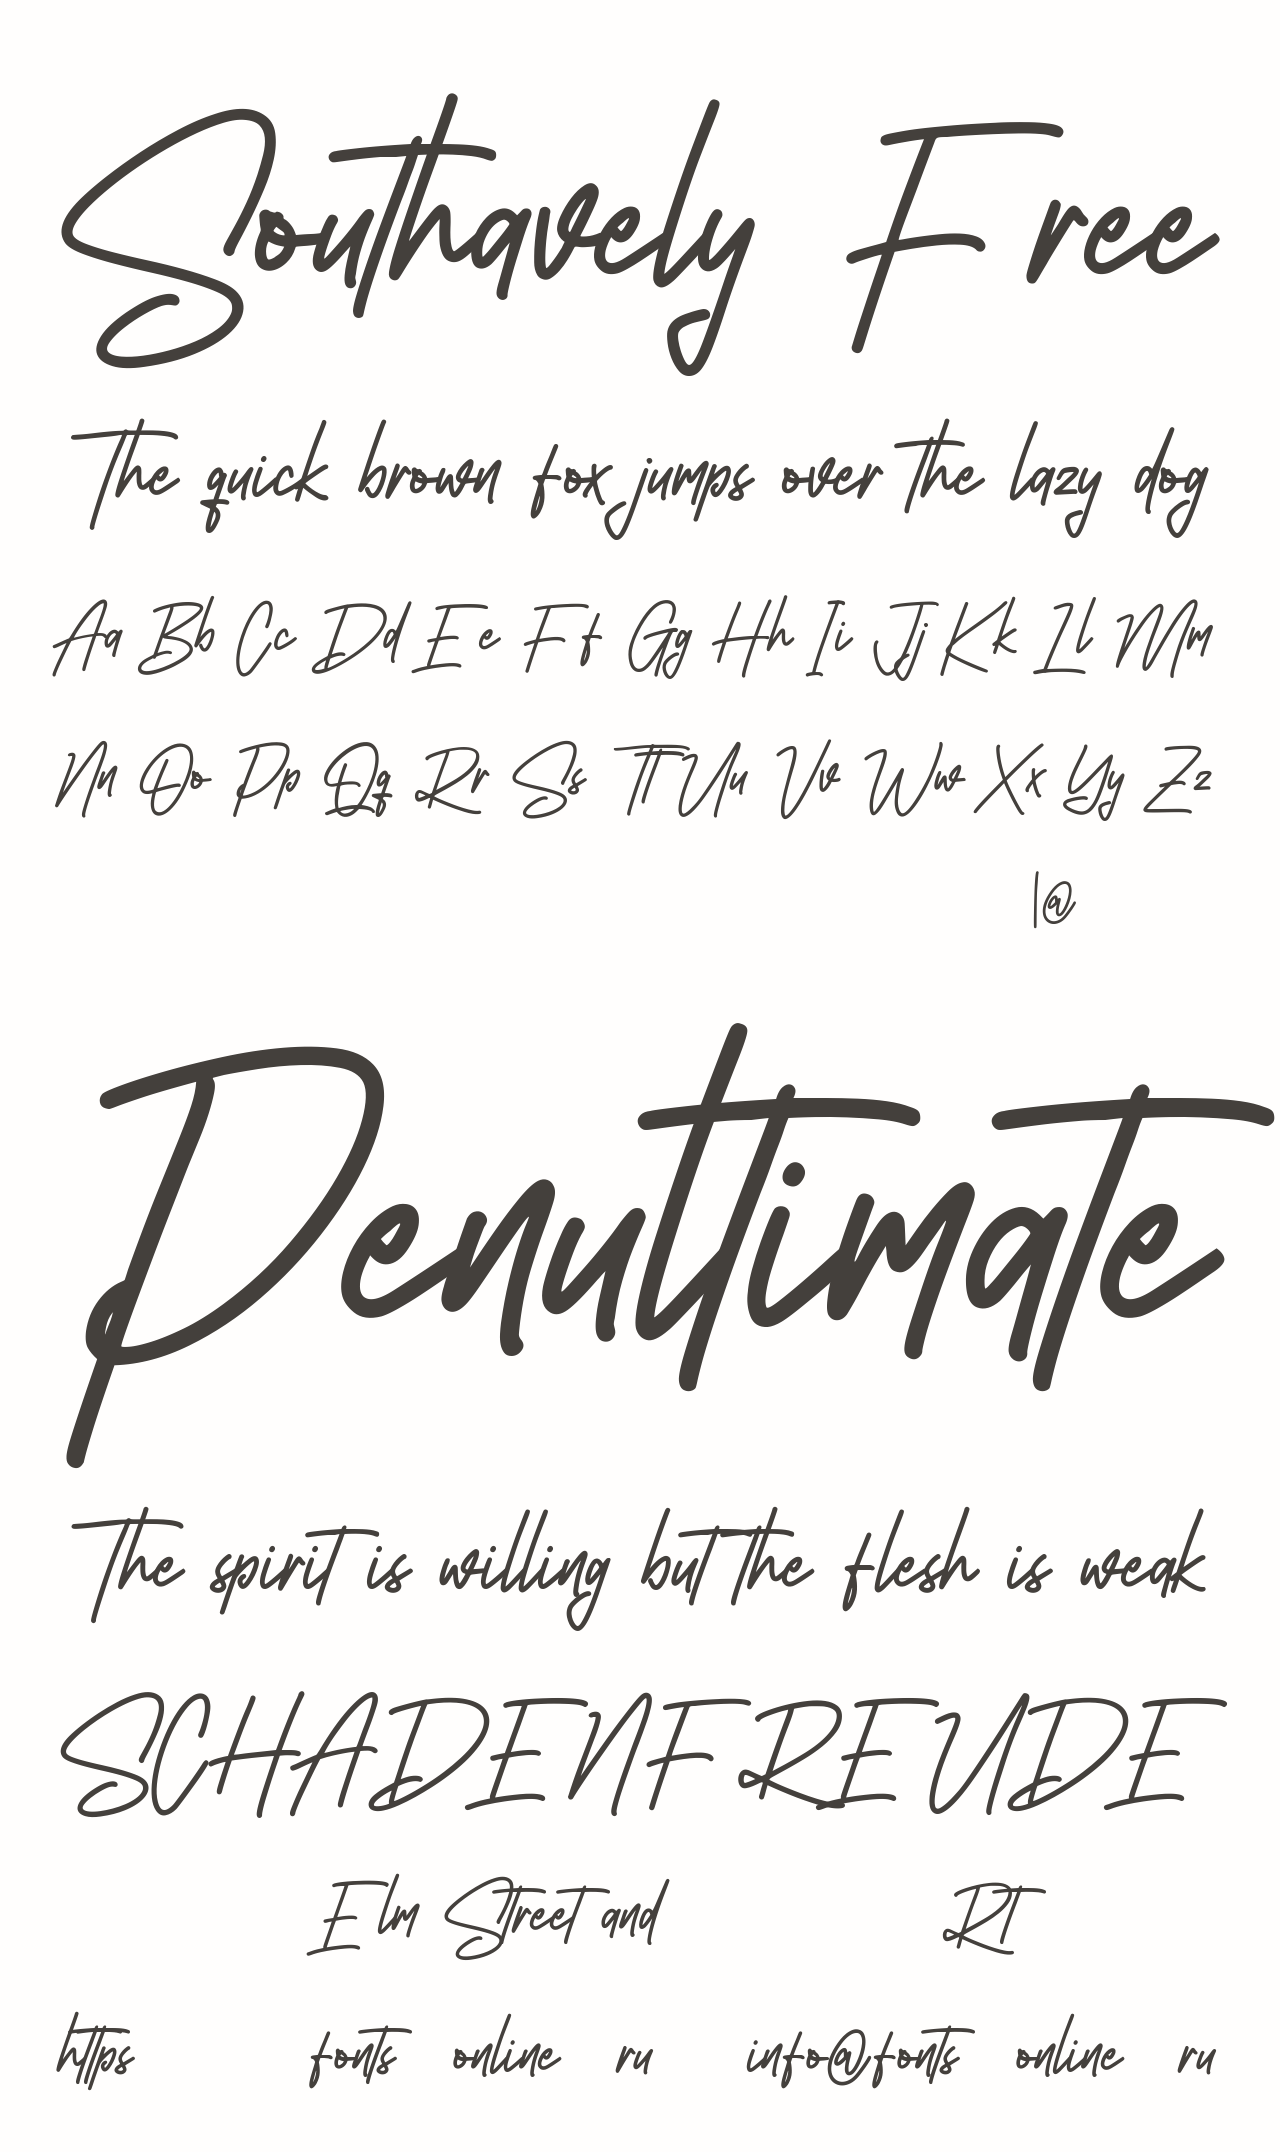 Southavely Free
The quick brown fox jumps over the lazy dog
Aa Bb Cc Dd Ee Ff Gg Hh Ii Jj Kk Ll Mm
Nn Oo Pp Qq Rr Ss Tt Uu Vv Ww Xx Yy Zz
|@
Penultimate
The spirit is willing but the flesh is weak
SCHADENFREUDE
Elm Street and Rt
https fonts online ru info@fonts online ru